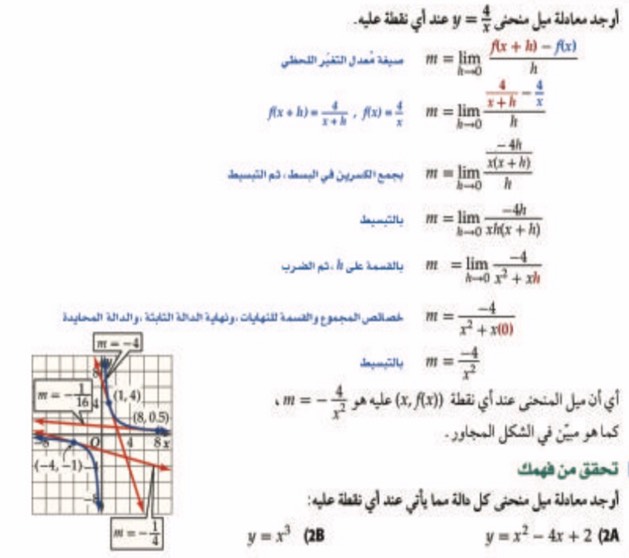 أوجد معادلة ميل منحنى y = 4/x عند أي نقطة عليه.
صيغة مُعدل التغيّر اللحظي m = lim h→0 (f(x + h) − f(x))/h
f(x + h) = 4/(x + h) , f(x) = 4/x m = lim h→0 (4/(x + h) − 4/x)/h
بجمع الكسرين في البسط، ثم التبسيط m = lim h→0 (−4h/(x(x + h)))/h
بالتبسيط m = lim h→0 −4h/(xh(x + h))
بالقسمة على h، ثم الضرب m = lim h→0 −4/(x² + xh)
خصائص المجموع والقسمة للنهايات، ونهاية الدالة الثابتة، والدالة المحايدة m = −4/(x² + x(0))
بالتبسيط m = −4/x²
أي أن ميل المنحنى عند أي نقطة (x, f(x)) عليه هو m = −4/x² ،
كما هو مبيّن في الشكل المجاور.
m = −4
8 y
m = −1/16
4 (1, 4)
(8, 0.5)
−8 O 4 8 x
(−4, −1) −4
−8
m = −1/4
تحقق من فهمك
أوجد معادلة ميل منحنى كل دالة مما يأتي عند أي نقطة عليه:
y = x² − 4x + 2 (2A
y = x³ (2B